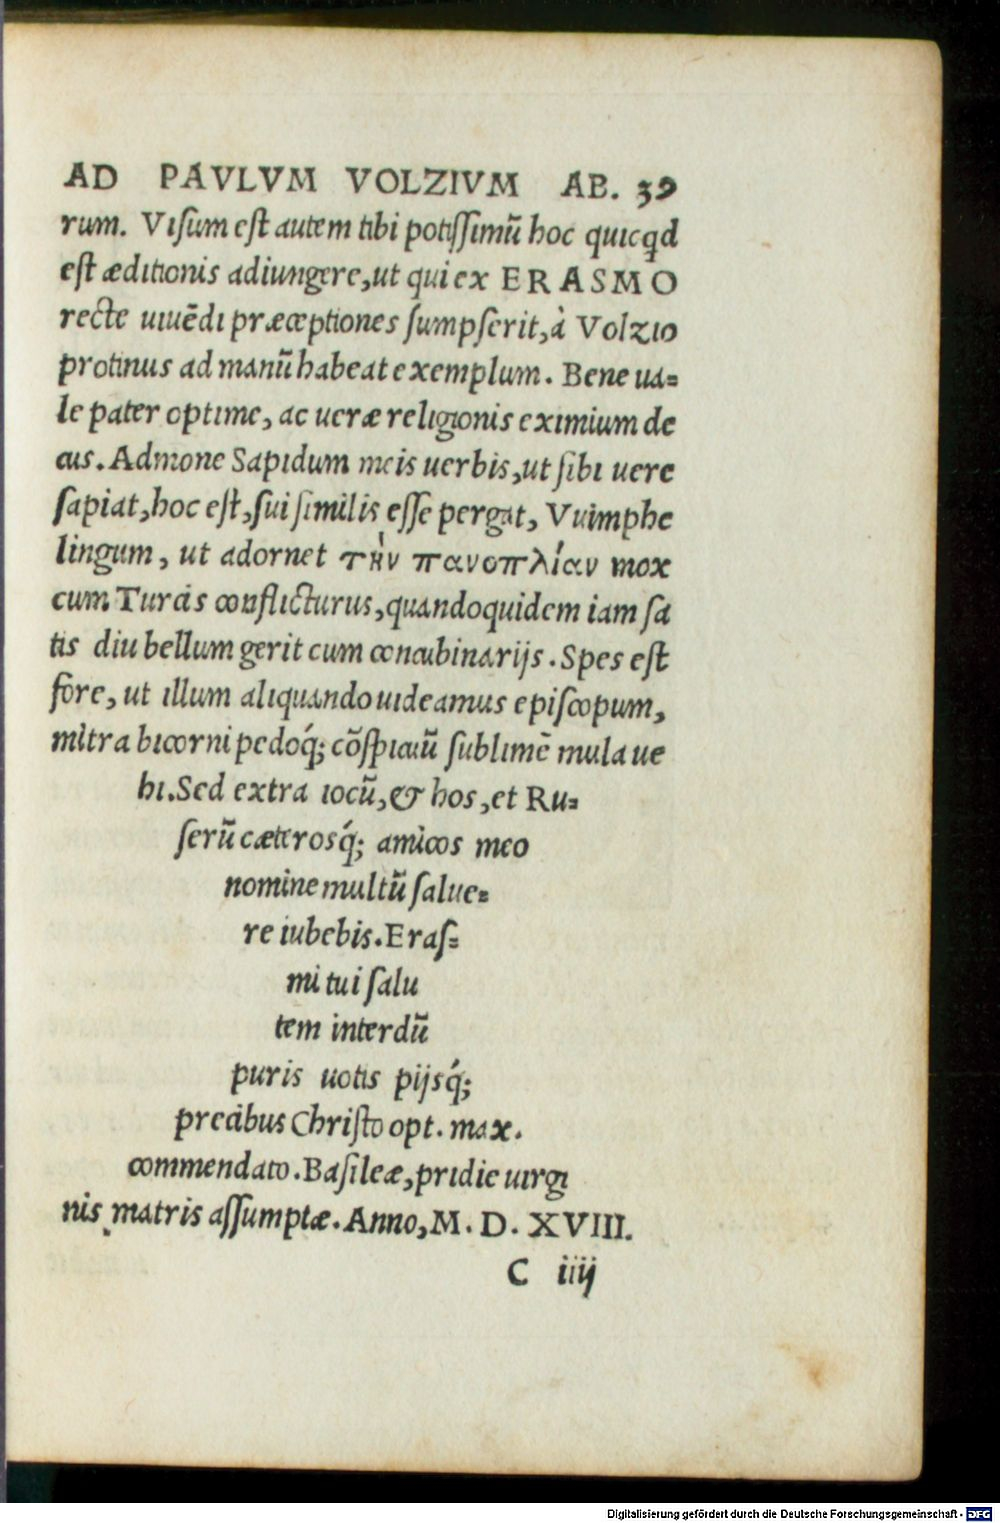 AD PAVLVM VOLZIVM AB. 39
rum. Viſum eſt autem tibi potiſſimũ hoc quicꝗd
eſt æditionis adiungere,ut qui ex ERASMO
recte uiuẽdi præceptiones ſumpſerit,à Volzio
protinus ad manũ habeat exemplum. Bene ua=
le pater optime, ac ueræ religionis eximium de
cus. Admone Sapidum meis uerbis,ut ſibi uere
ſapiat,hoc eſt,ſui ſimilis eſſe pergat, Vuimphe
lingum, ut adornet τὴν πανοπλίαν mox
cum Turcis conflicturus,quandoquidem iam ſa
tis diu bellum gerit cum concubinarijs. Spes eſt
fore, ut illum aliquando uideamus epiſcopum,
mitra bicorni pedoq́; cõſpicuũ ſublimẽ mula ue
hi. Sed extra iocũ,& hos,et Ru=
ſerũ cæterosq́; amicos meo
nomine multũ ſalue=
re iubebis. Eraſ=
mi tui ſalu
tem interdũ
puris uotis pijsq́;
precibus Chriſto opt. max.
commendato. Baſileæ,pridie uirgi
nis matris aſſumptæ. Anno,M. D. XVIII.
C iiij
Digitalisierung gefördert durch die Deutsche Forschungsgemeinschaft - DFG